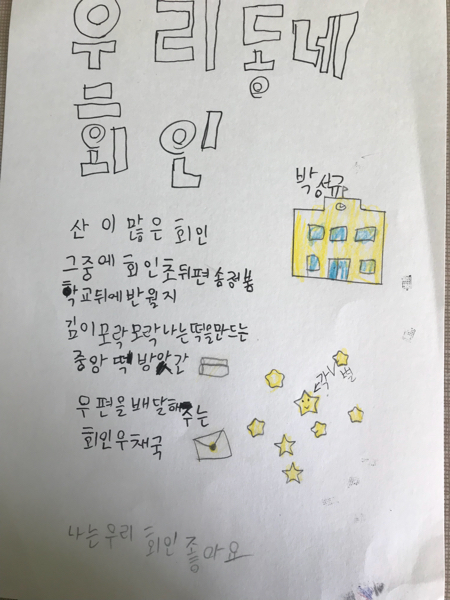 우리동네
회인
박성규
산이 많은 회인
그중에 회인초뒤편 송정봉
학교뒤에 반월지
김이모락모락나는 떡을만드는
중앙 떡 방앗간
각별
우편을 배달해주는
회인우채국
나는우리 회인 좋아요